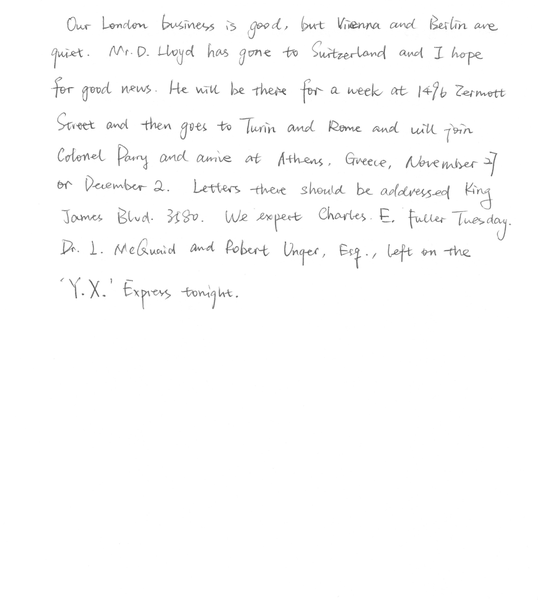 Our London business is good, but Vienna and Berlin are
quiet. Mr. D. Lloyd has gone to Switzerland and I hope
for good news. He will be there for a week at 1496 Zermott
Street and then goes to Turin and Rome and will join
Colonel Parry and arrive at Athens, Greece, November 27
or December 2. Letters there should be addressed King
James Blvd. 3580. We expert Charles E. Fuller Tuesday.
Dr. L. McQuaid and Robert Unger, Esq., left on the
'Y.X.' Express tonight.